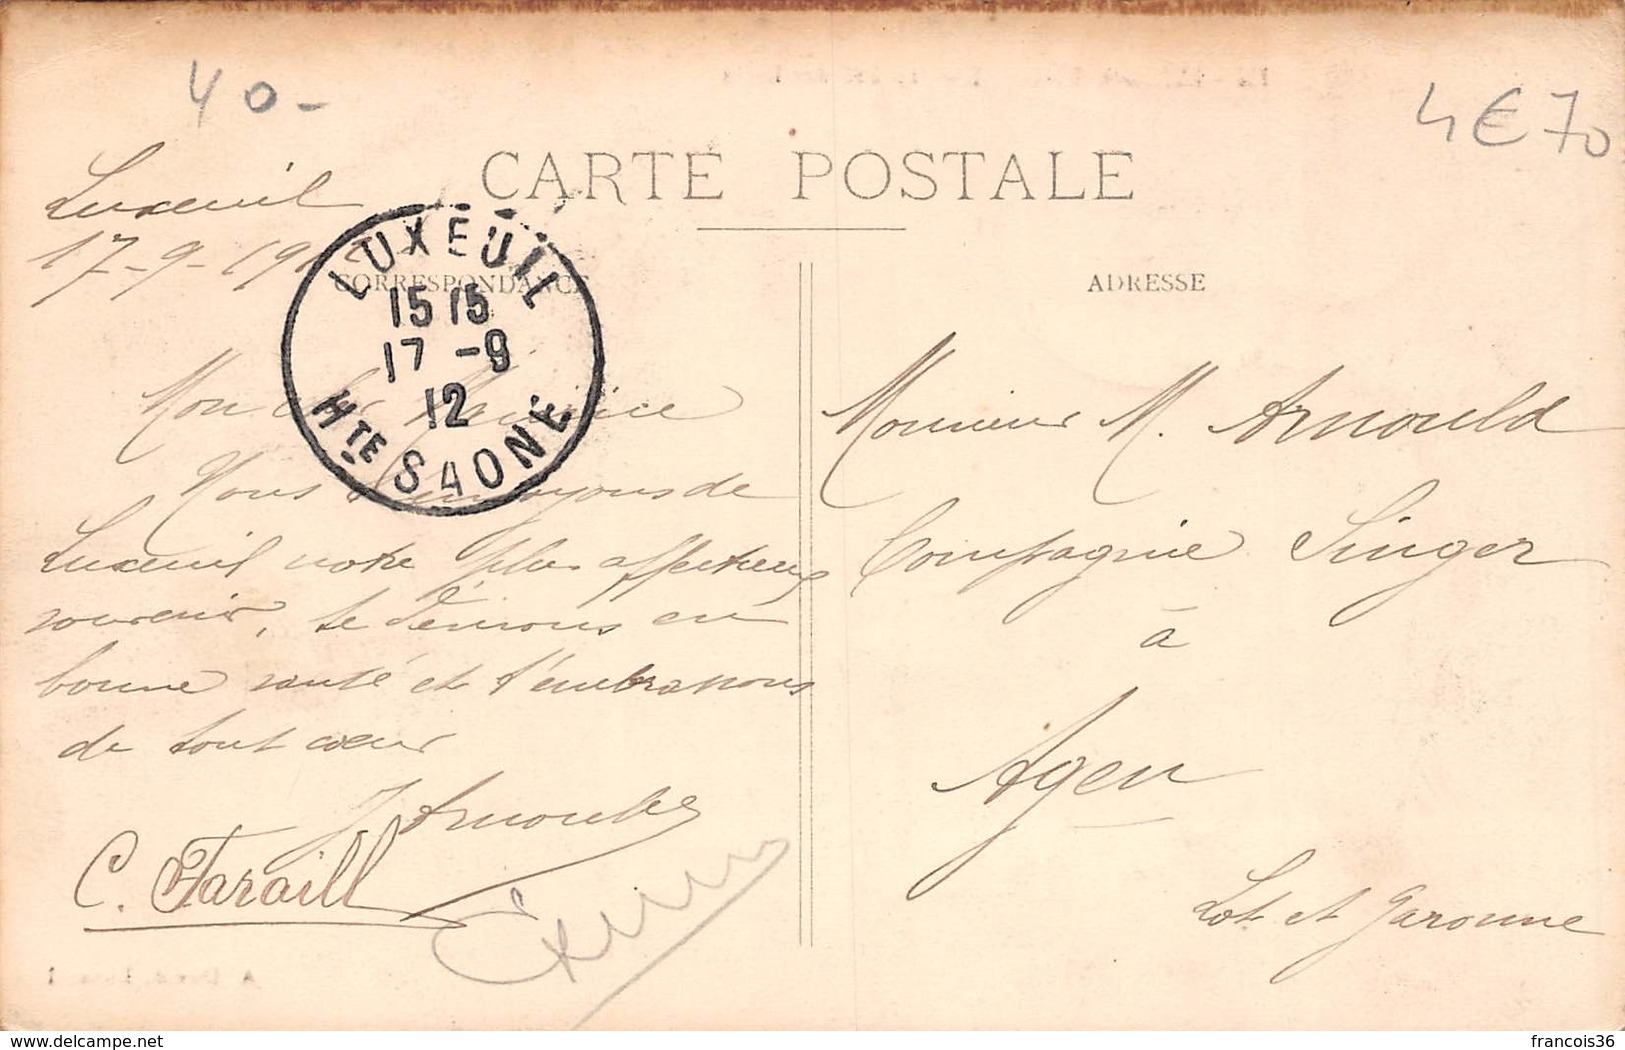 40-
4€70
CARTE POSTALE
Luxeuil
17-9-1912
CORRESPONDANCE
ADRESSE
LUXEUIL
15 15
17 -9
12
HTE SAONE
Mon cher Maurice
Nous t'envoyons de
Luxeuil notre plus affectueux
souvenir, te désirons en
bonne santé et t'embrassons
de tout coeur
J Arnould
C. Faraill
Monsieur M. Arnould
Compagnie Singer
à
Agen
Lot et Garonne
www.delcampe.net
francois36